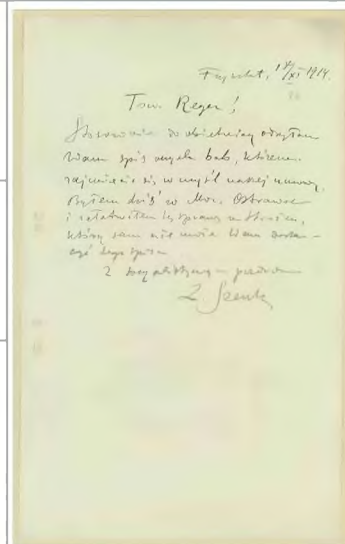 Frysztat, 14/XI 1914.
Tow. Reger!
Stosownie do obietnicy odsyłam
Wam spis onych bab, któremi
zajmiecie się, w myśl naszej umowy.
Byłem dziś w Mor. Ostrawie
i załatwiłem tę sprawę
który sam nie może Wam
tego spisu
Z socjalistycznem pozdrowieniem